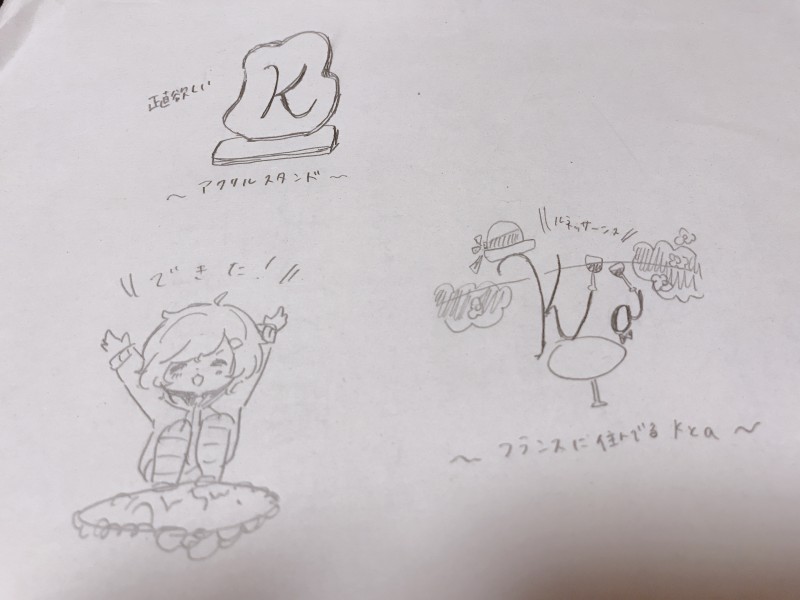 正直欲しい
K
～ アクリルスタンド ～
\\ できた! //
\\ ルネッサーンス //
K a
～ フランスに住んでる Kとa ～